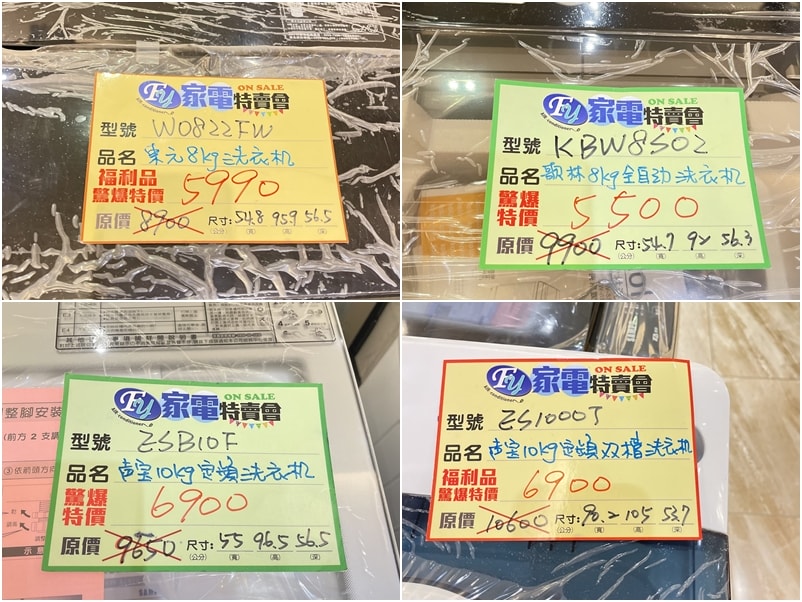 Fu 家電特賣會 ON SALE
Air conditioner
型號 W0822FW
品名 東元8kg洗衣机
福利品
驚爆特價 5990
原價 8900 尺寸: 54.8 95.9 56.5
(公分) (寬) (高) (深)
Fu 家電特賣會 ON SALE
Air conditioner
型號 KBW8502
品名 歌林8kg全自动洗衣机
驚爆
特價 5500
原價 9900 尺寸: 54.7 92 56.3
(公分) (寬) (高) (深)
整腳安裝
(前方2支調
(3)依箭頭方向
Fu 家電特賣會 ON SALE
Air conditioner
型號 ESB10F
品名 声宝10kg定頻洗衣机
驚爆
特價 6900
原價 9650 尺寸: 55 96.5 56.5
(公分) (寬) (高) (深)
Fu 家電特賣會 ON SALE
Air conditioner
型號 ES1000T
品名 声宝10kg定頻双槽洗衣机
福利品
驚爆特價 6900
原價 10600 尺寸: 90.2 105 53.7
(公分) (寬) (高) (深)